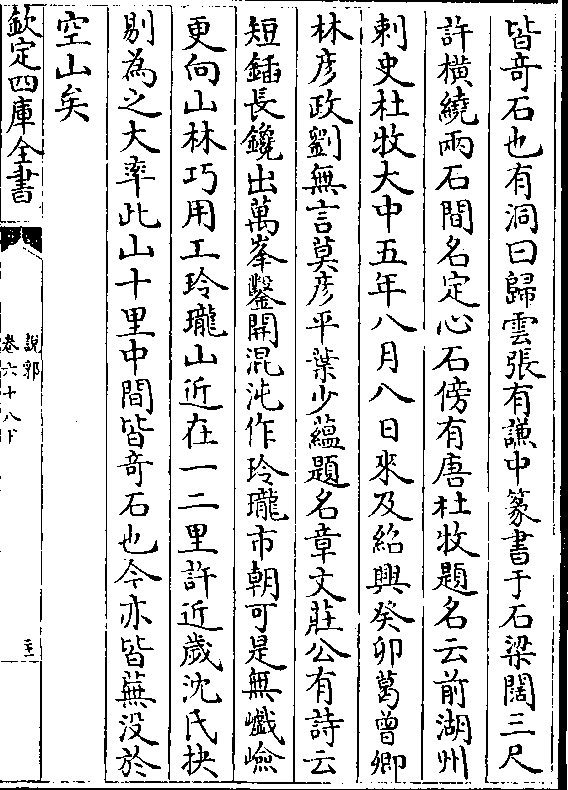 皆奇石也有洞曰歸雲張有謙中篆書于石梁闊三尺
許橫繞兩石間名定心石傍有唐杜牧題名云前湖州
刺史杜牧大中五年八月八日來及紹興癸卯葛魯卿
林彦政劉無言莫彦平葉少藴題名章文莊公有詩云
短鍤長鑱出萬峯鑿開混沌作玲瓏市朝可是無巇嶮
更向山林巧用工玲瓏山近在一二里許近歲沈氏抉
剔為之大率此山十里中間皆奇石也今亦皆蕪没於
空山矣
欽定四庫全書
說郛
卷六十八下